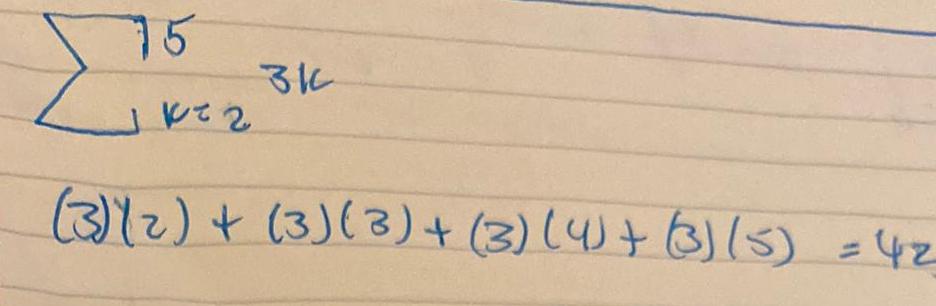 ∑ 5 k=2 3k
(3)(2) + (3)(3) + (3)(4) + (3)(5) = 42